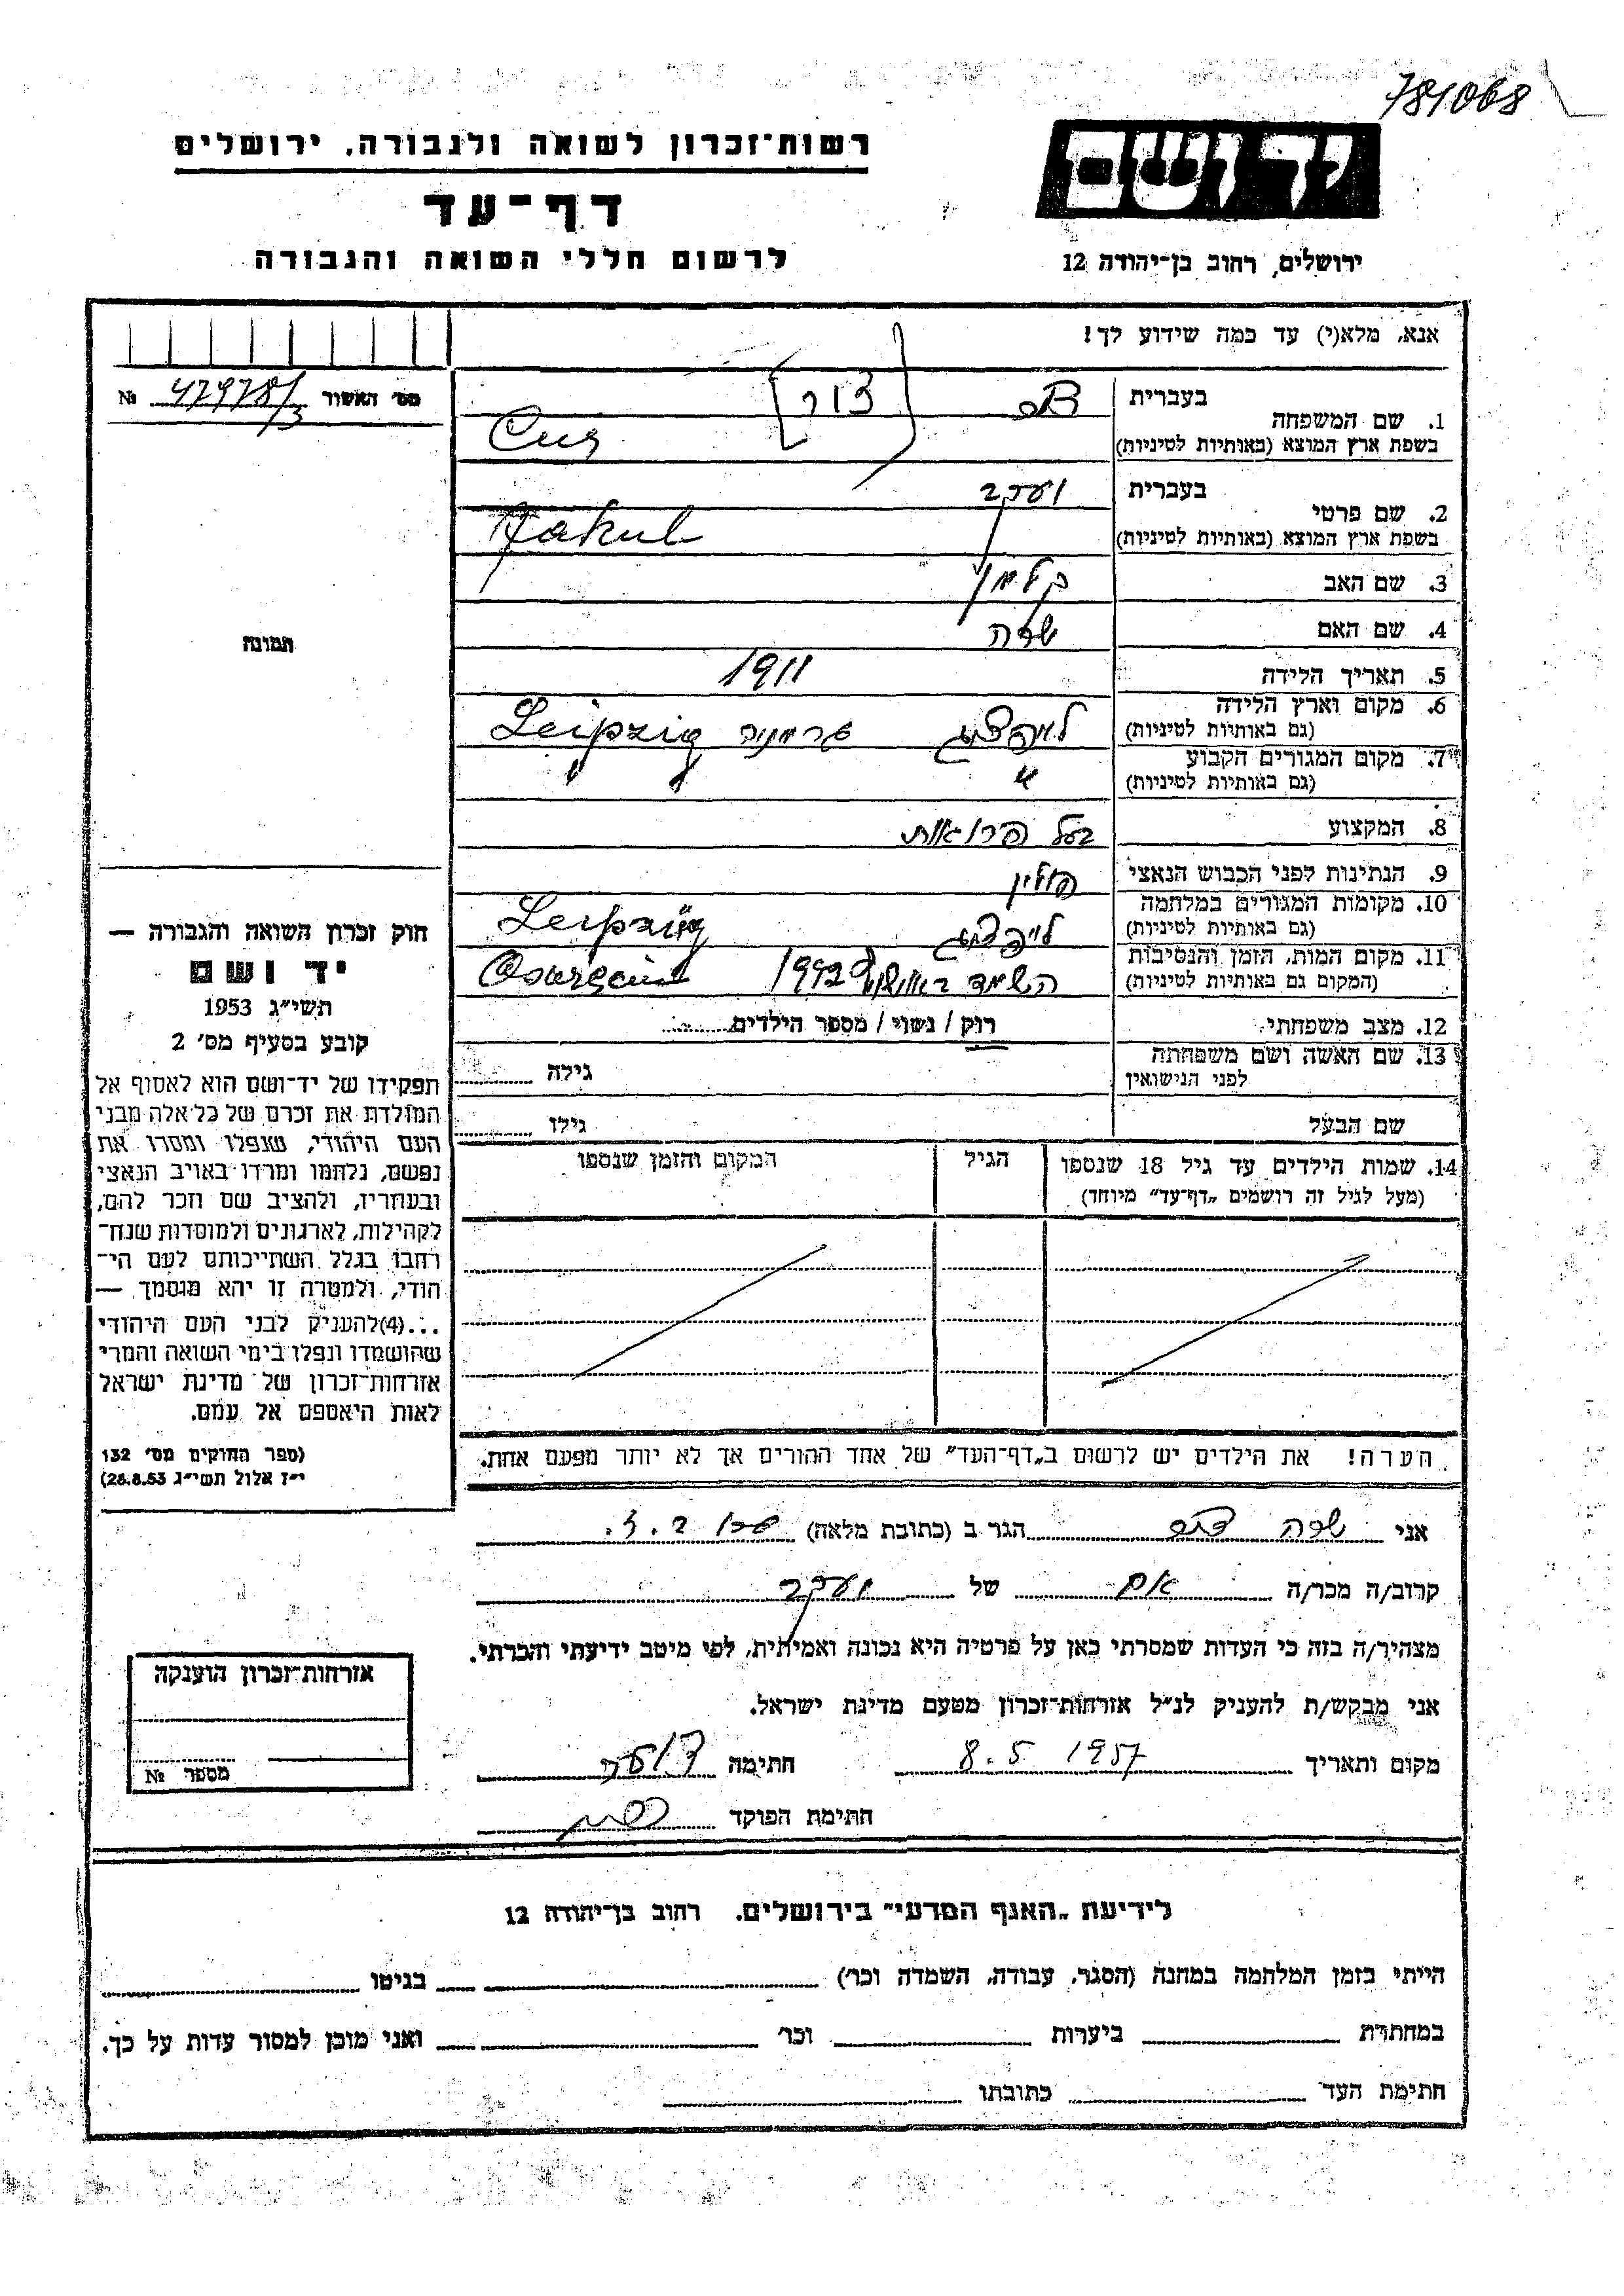 781068
רשות־זכרון לשואה ולגבורה, ירושלים
דף־עד
לרשום חללי השואה והגבורה
ידושם
ירושלים, רחוב בן־יהודה 12
אנא, מלא(י) עד כמה שידוע לך!
מס׳ האשור 47978/3 №
תמונה
1. שם המשפחה
בעברית [צור]
בשפת ארץ המוצא (באותיות לטיניות)
2. שם פרטי
בעברית יעקב
בשפת ארץ המוצא (באותיות לטיניות) Jakub
3. שם האב קלמן
4. שם האם שרה
5. תאריך הלידה 1911
6. מקום וארץ הלידה
(גם באותיות לטיניות) לייפציג גרמניה Leipzig
7. מקום המגורים הקבוע
(גם באותיות לטיניות) "
8. המקצוע בעל
9. הנתינות לפני הכבוש הנאצי פולין
10. מקומות המגורים במלחמה
(גם באותיות לטיניות) לייפציג Leipzig
11. מקום המות, הזמן והנסיבות
(המקום גם באותיות לטיניות) הושמד 1942
12. מצב משפחתי רוק / נשוי / מספר הילדים
13. שם האשה ושם משפחתה
לפני הנישואין גילה
שם הבעל גילו
14. שמות הילדים עד גיל 18 שנספו הגיל המקום והזמן שנספו
(מעל לגיל זה רושמים „דף־עד״ מיוחד)
חוק זכרון השואה והגבורה —
יד ושם
תשי״ג 1953
קובע בסעיף מס׳ 2
תפקידו של יד־ושם הוא לאסוף אל
המולדת את זכרם של כל אלה מבני
העם היהודי, שנפלו ומסרו את
נפשם, נלחמו ומרדו באויב הנאצי
ובעוזריו, ולהציב שם וזכר להם,
לקהילות, לארגונים ולמוסדות שנח־
רבו בגלל השתייכותם לעם הי־
הודי, ולמטרה זו יהא מוסמך —
...(4) להעניק לבני העם היהודי
שהושמדו ונפלו בימי השואה והמרי
אזרחות־זכרון של מדינת ישראל
לאות היאספם אל עמם.
(ספר החוקים מס׳ 132
י״ז אלול תשי״ג 28.8.53)
הערה! את הילדים יש לרשום ב„דף־העד״ של אחד ההורים אך לא יותר מפעם אחת.
אני שרה הגר ב (כתובת מלאה)
קרוב/ה מכר/ה אם של יעקב
מצהיר/ה בזה כי העדות שמסרתי כאן על פרטיה היא נכונה ואמיתית, לפי מיטב ידיעתי והכרתי.
אני מבקש/ת להעניק לנ״ל אזרחות־זכרון מטעם מדינת ישראל.
מקום ותאריך 8.5 1957 חתימה
חתימת הפוקד
אזרחות־זכרון הוענקה
מספר №
לידיעת „האגף המדעי״ בירושלים. רחוב בן־יהודה 12
הייתי בזמן המלחמה במחנה (הסגר, עבודה, השמדה וכו׳) בגיטו
במחתרת ביערות וכו׳ ואני מוכן למסור עדות על כך.
חתימת העד כתובתו